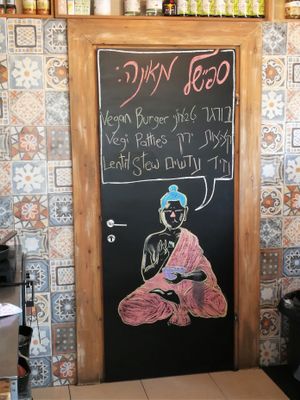 ספיישל מאונה:
בורגר טבעוני Vegan Burger
קציצות ירק Vegi Patties
נזיד עדשים Lentil Stew